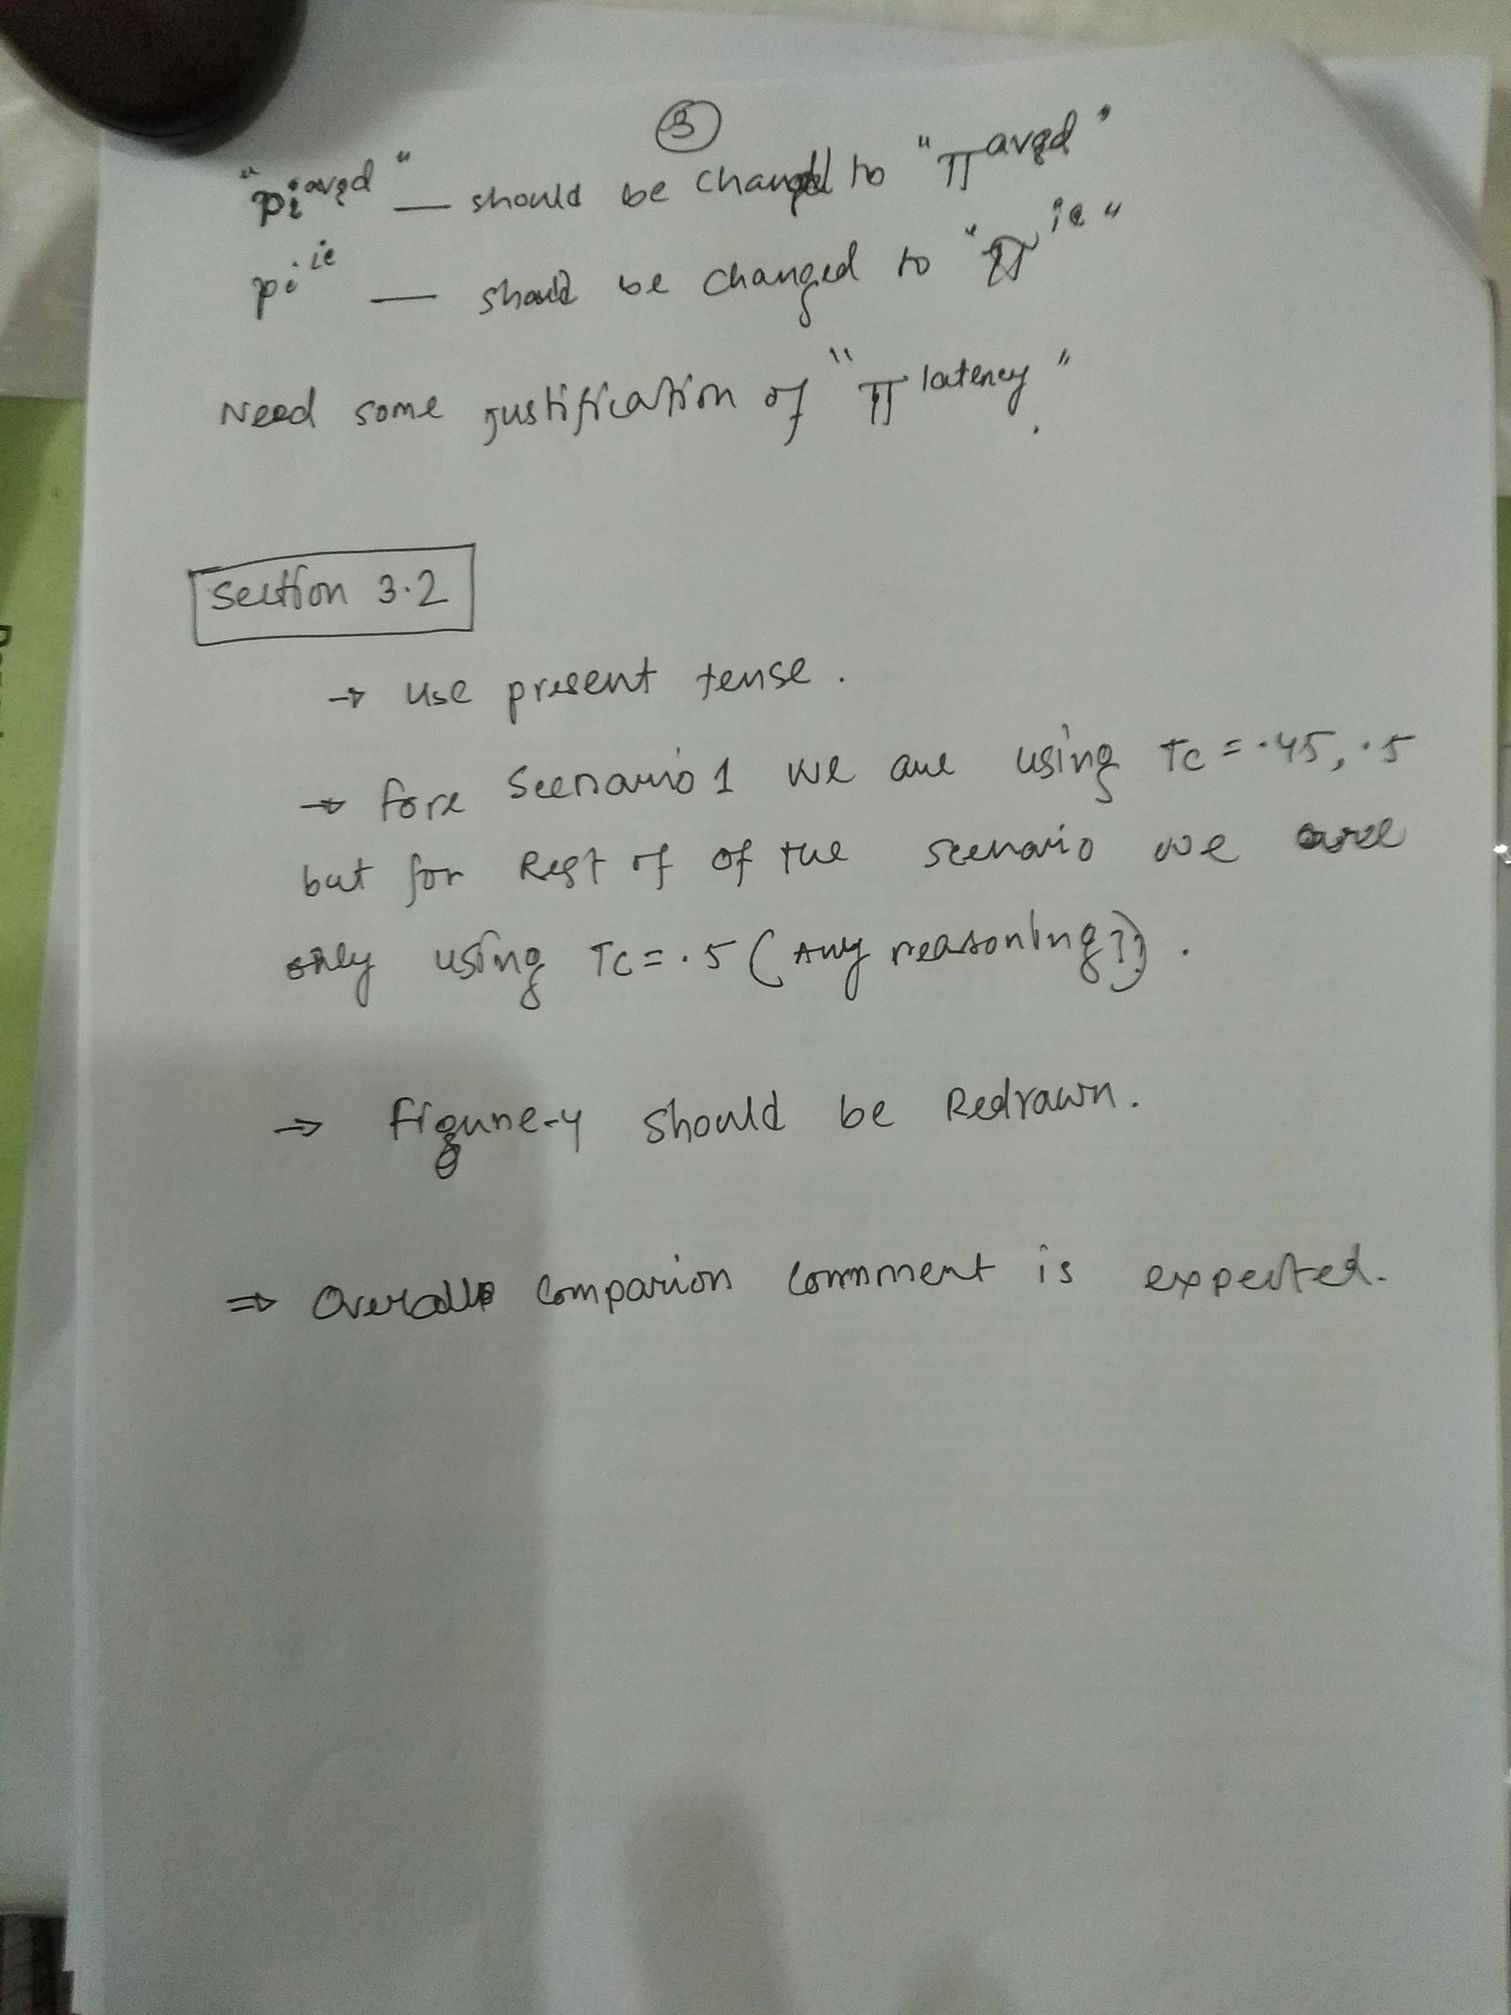 3
"pi avgd" — should be changed to "π avgd"
pi ie — should be changed to "π ie"
Need some justification of "π latency".
Section 3.2
→ use present tense.
→ fore Scenario 1 we are using Tc = .45, .5
but for Rest of of the scenario we are
only using Tc = .5 (Any reasoning??).
⇒ figure-4 should be Redrawn.
⇒ Overall comparion comment is expected.